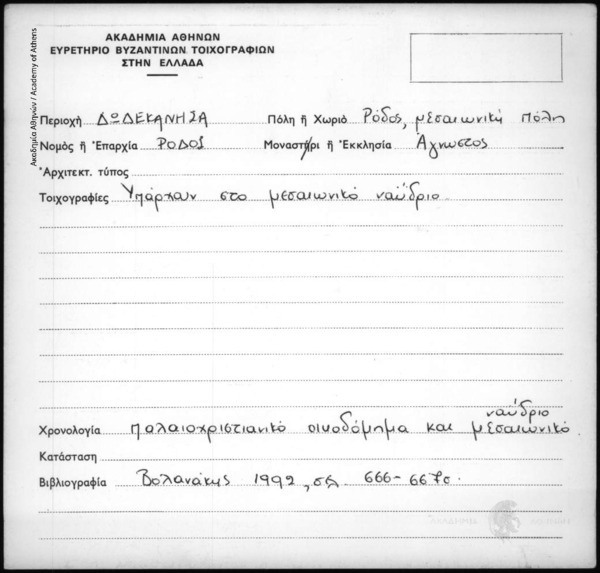 ΑΚΑΔΗΜΙΑ ΑΘΗΝΩΝ
ΕΥΡΕΤΗΡΙΟ ΒΥΖΑΝΤΙΝΩΝ ΤΟΙΧΟΓΡΑΦΙΩΝ
ΣΤΗΝ ΕΛΛΑΔΑ
Ακαδημία Αθηνών / Academy of Athens
Περιοχή ΔΩΔΕΚΑΝΗΣΑ Πόλη ἤ Χωριὸ Ρόδος, μεσαιωνική πόλη
Νομὸς ἤ Ἐπαρχία ΡΟΔΟΣ Μοναστήρι ἤ Ἐκκλησία Άγνωστος
Ἀρχιτεκτ. τύπος
Τοιχογραφίες Υπάρχουν στο μεσαιωνικό ναΰδριο.
ναΰδριο
Χρονολογία παλαιοχριστιανικό οικοδόμημα και μεσαιωνικό
Κατάσταση
Βιβλιογραφία Βολανάκης 1992, σελ. 666-667